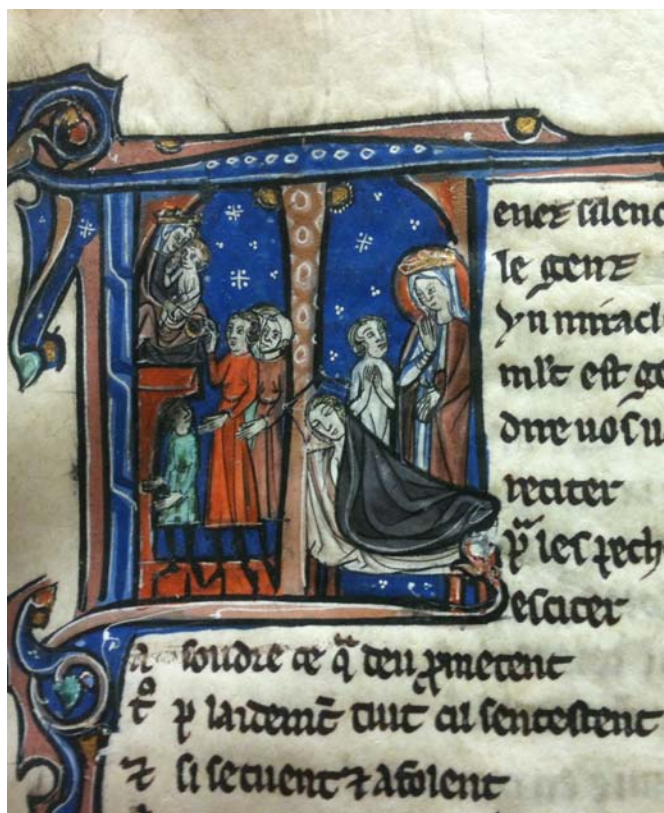 enez silenc
le genz
Vn miracl
ml't est ge
dire uos u
reciter
pͬ les pech
esciter
a soudre ce qᷓ deu ꝓmetent
tͦ p laidem̄t tuit cil sentestent
⁊ si se tuent ⁊ afolent